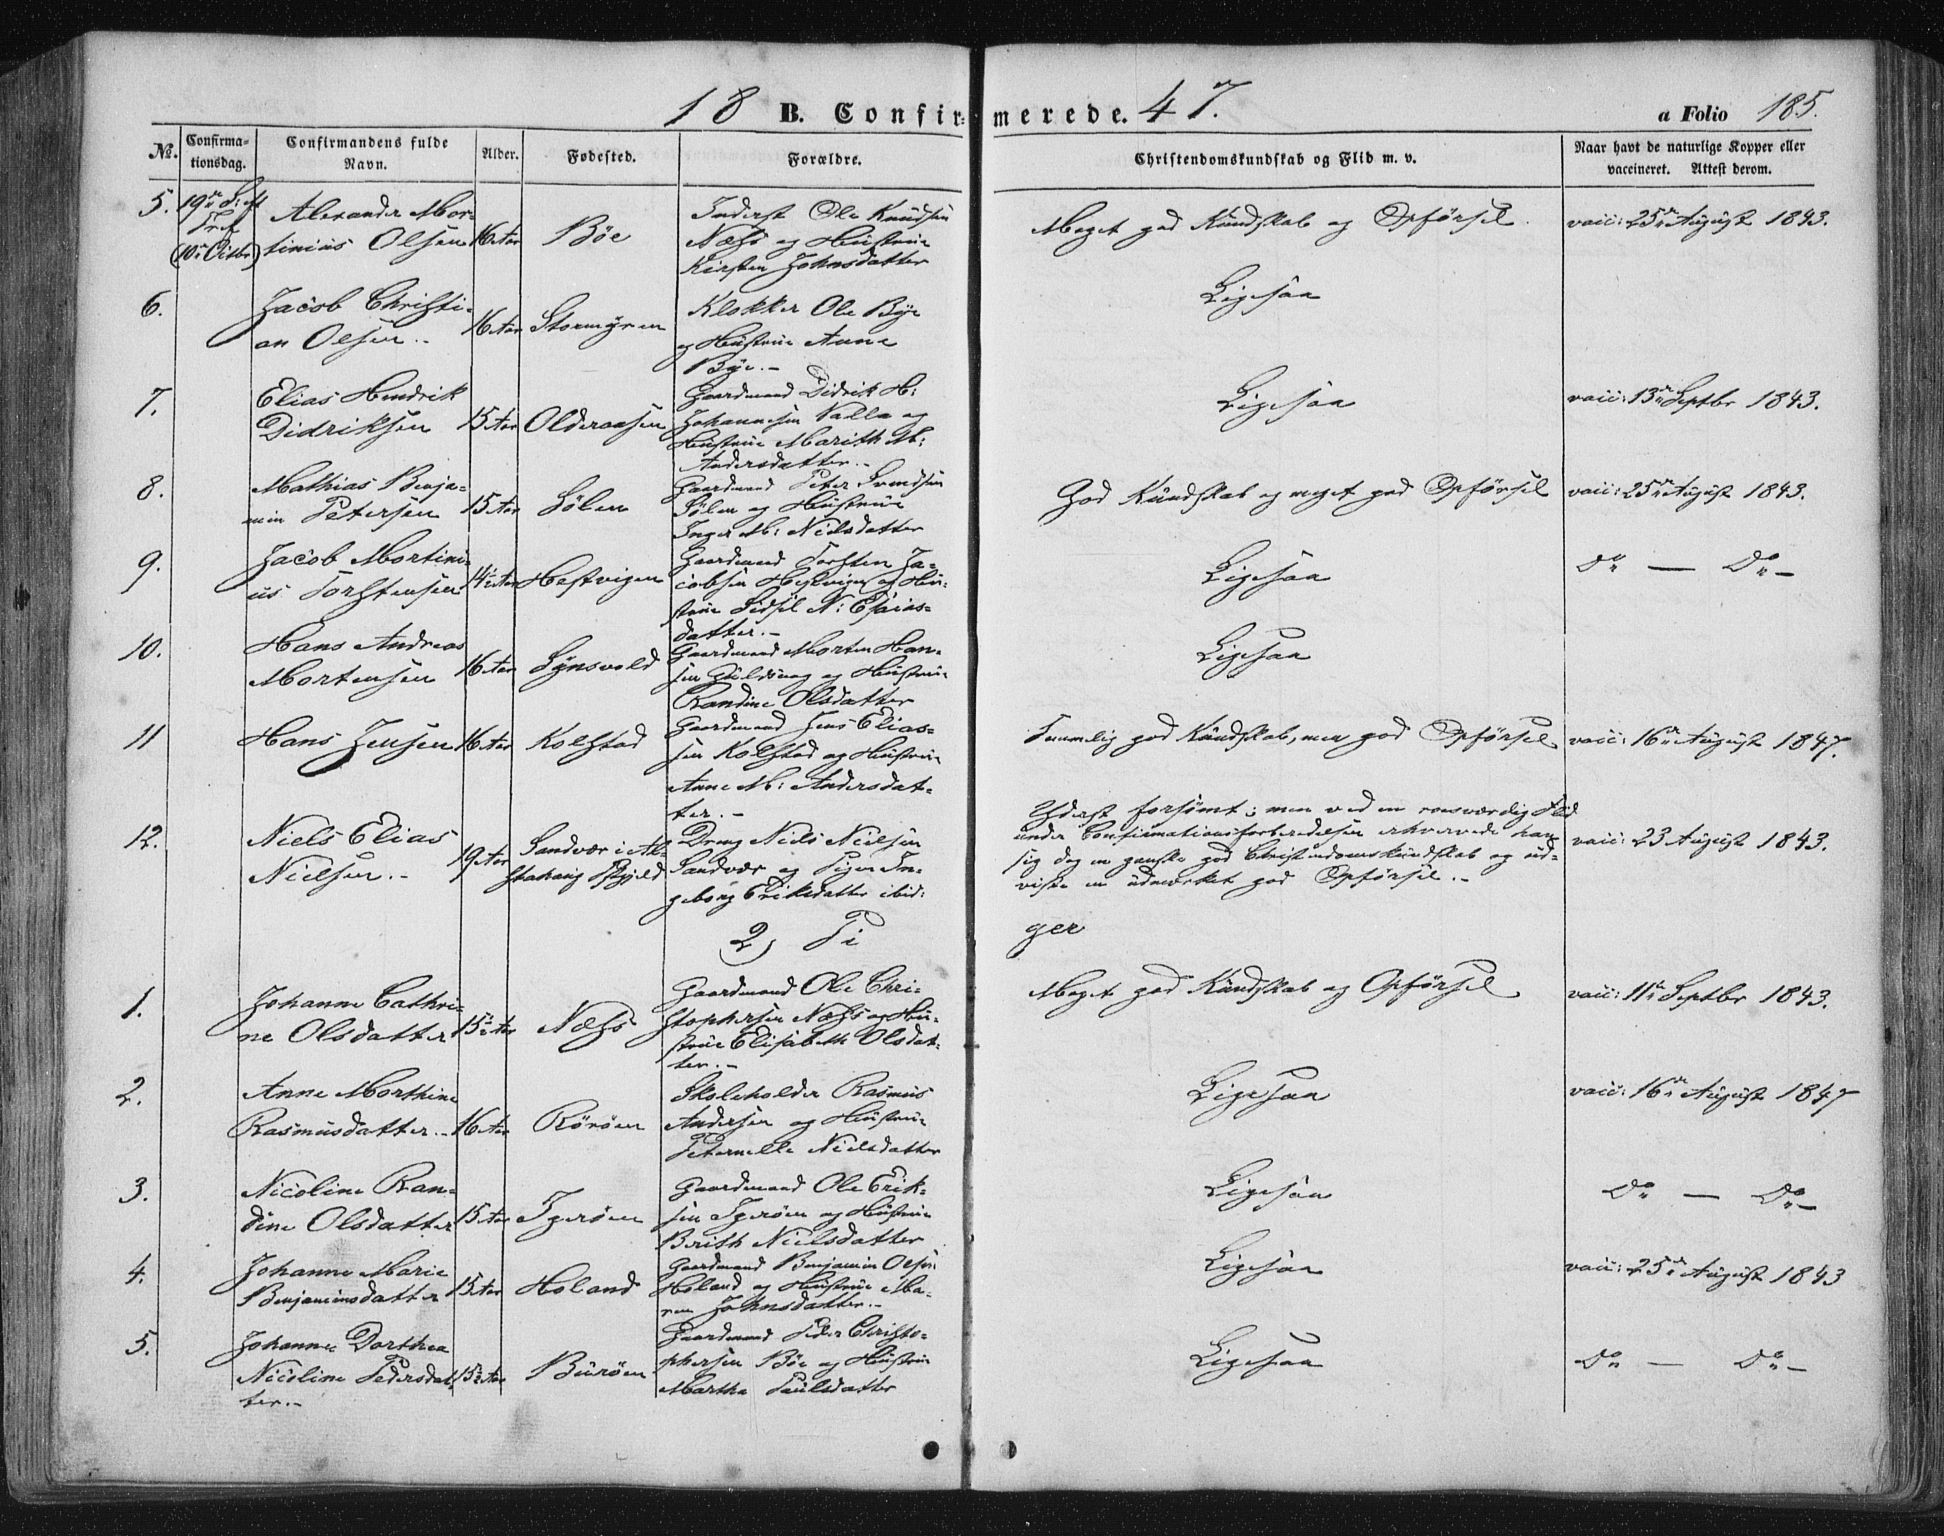 18 B. Confirmerede. 47.
a Folio 185.
No. Confirmationsdag. Confirmandens fulde Navn. Alder. Fødested. Forældre. Christendomskundskab og Flid m. v. Naar havt de naturlige Kopper eller vaccineret. Attest derom.
5. 19de S: eft
Tref
(10de Octbr)
Alexander Mor-
tinius Olsen
16 Aar
Bøe
Inderst Ole Knudsen
Næss og Hustrue
Kirsten Johnsdatter
Meget god Kundskab og Opførsel
vacc: 25de August 1843.
6.
Jacob Christi-
an Olsen.-
16 Aar
Stormyren
Klokker Ole Bye
og Hustrue Anne
Bye.-
Ligesaa
7.
Elias Hendrik
Didriksen
15 Aar
Olderaasen
Gaardmand Didrik H:
Johannesen Valla og
Hustrue Marith M:
Andersdatter.-
Ligesaa
vacc: 13de Septbr 1843.
8.
Mathias Benja-
min Petersen
15 Aar
Sølen
Gaardmand Peter Svendsen
Sølen og Hustrue
Inger M: Nielsdatter
God Kundskab og meget god Opførsel
vacc: 25de August 1843.
9.
Jacob Mortini-
us Torstensen
14½ Aar
Hestvigen
Gaardmand Torsten Ja-
cobsen Hestvigen og Hu-
strue Sidsel N: Esaias-
datter.-
Ligesaa
Do — Do -
10.
Hans Andreas
Mortensen
16 Aar
Synsvold
Gaardmand Morten Han-
sen Guldvog og Hustrue
Randine Olsdatter
Ligesaa
11
Hans Jensen
16 Aar
Kolstad
Gaardmand Jens Elias-
sen Kolstad og Hustrue
Anne M: Andersdat-
ter.-
Temmelig god Kundskab, men god Opførsel
vacc: 16de August 1847.
12.
Niels Elias
Nielsen.-
19 Aar
Sandvær i Al-
stahaug Pgjeld
Dreng Niels Nielsen
Sandvær og Pigen In-
geborg Eriksdatter ibid:
Yderst forsømt; men ved en roesværdig Flid
under Confirmationsforberedelsen erhvervede han
sig dog en ganske god Christendomskundskab og ud-
viste en udmærket god Opførsel.-
vacc: 23 August 1843.
2) Pi
ger
1.
Johanne Cathri-
ne Olsdatter
15½ Aar
Næss
Gaardmand Ole Chri-
stophersen Næss og Hu-
strue Elisabeth Olsdat-
ter.-
Meget god Kundskab og Opførsel
vacc: 11te Septbr 1843.
2.
Anne Morthine
Rasmusdatter.-
16 Aar
Rörøen
Skoleholder Rasmus
Andersen og Hustrue
Peternelle Nielsdatter
Ligesaa
vacc: 16de August 1847
3.
Nicoline Ran-
dine Olsdatter
15 Aar
Igerøen
Gaardmand Ole Erik-
sen Igerøen og Hustrue
Brith Nielsdatter
Ligesaa
Do — Do -
4.
Johanne Marie
Benjaminsdatter
15 Aar
Holand
Gaardmand Benjamin Olsen
Holand og Hustrue Ma-
ren Johnsdatter.-
Ligesaa
vacc: 25de August 1843
5.
Johanne Dorthea
Nicoline Pedersdat-
ter.-
15½ Aar
Burøen
Gaardmand Peder Christo-
phersen Bøe og Hustrue
Martha Paulsdatter
Ligesaa
Do — Do -